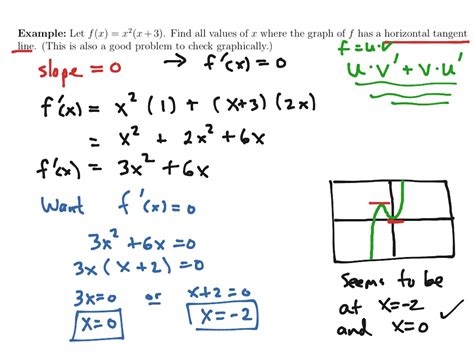 Example: Let f(x) = x²(x + 3). Find all values of x where the graph of f has a horizontal tangent
line. (This is also a good problem to check graphically.)
f = u·v
slope = 0 → f'(x) = 0
u·v' + v·u'
f'(x) = x² (1) + (x+3) (2x)
= x² + 2x² + 6x
f'(x) = 3x² + 6x
Want f'(x) = 0
3x² + 6x = 0
3x (x + 2) = 0
3x = 0 or x+2 = 0
x = 0 x = -2
Seems to be
at x = -2
and x = 0 ✓